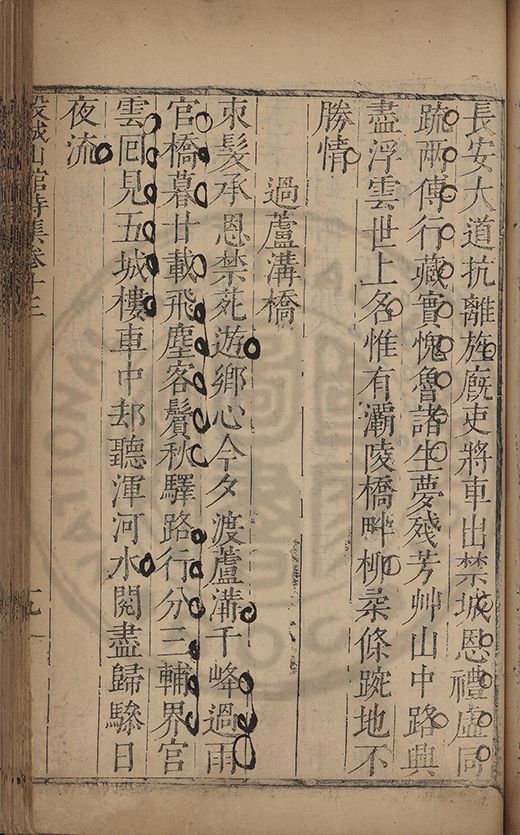 長安大道抗離旌廐吏將車出禁城恩禮虛同
疏兩傅行藏實愧魯諸生夢殘芳艸山中路興
盡浮雲世上名惟有灞陵橋畔柳柔條踠地不
勝情
過蘆溝橋
束髮承恩禁苑遊鄉心今夕渡蘆溝千峰過雨
官橋暮廿載飛塵客鬢秋驛路行分三輔界宮
雲囘見五城樓車中却聽渾河水閱盡歸驂日
夜流
穀城山館詩集卷十三